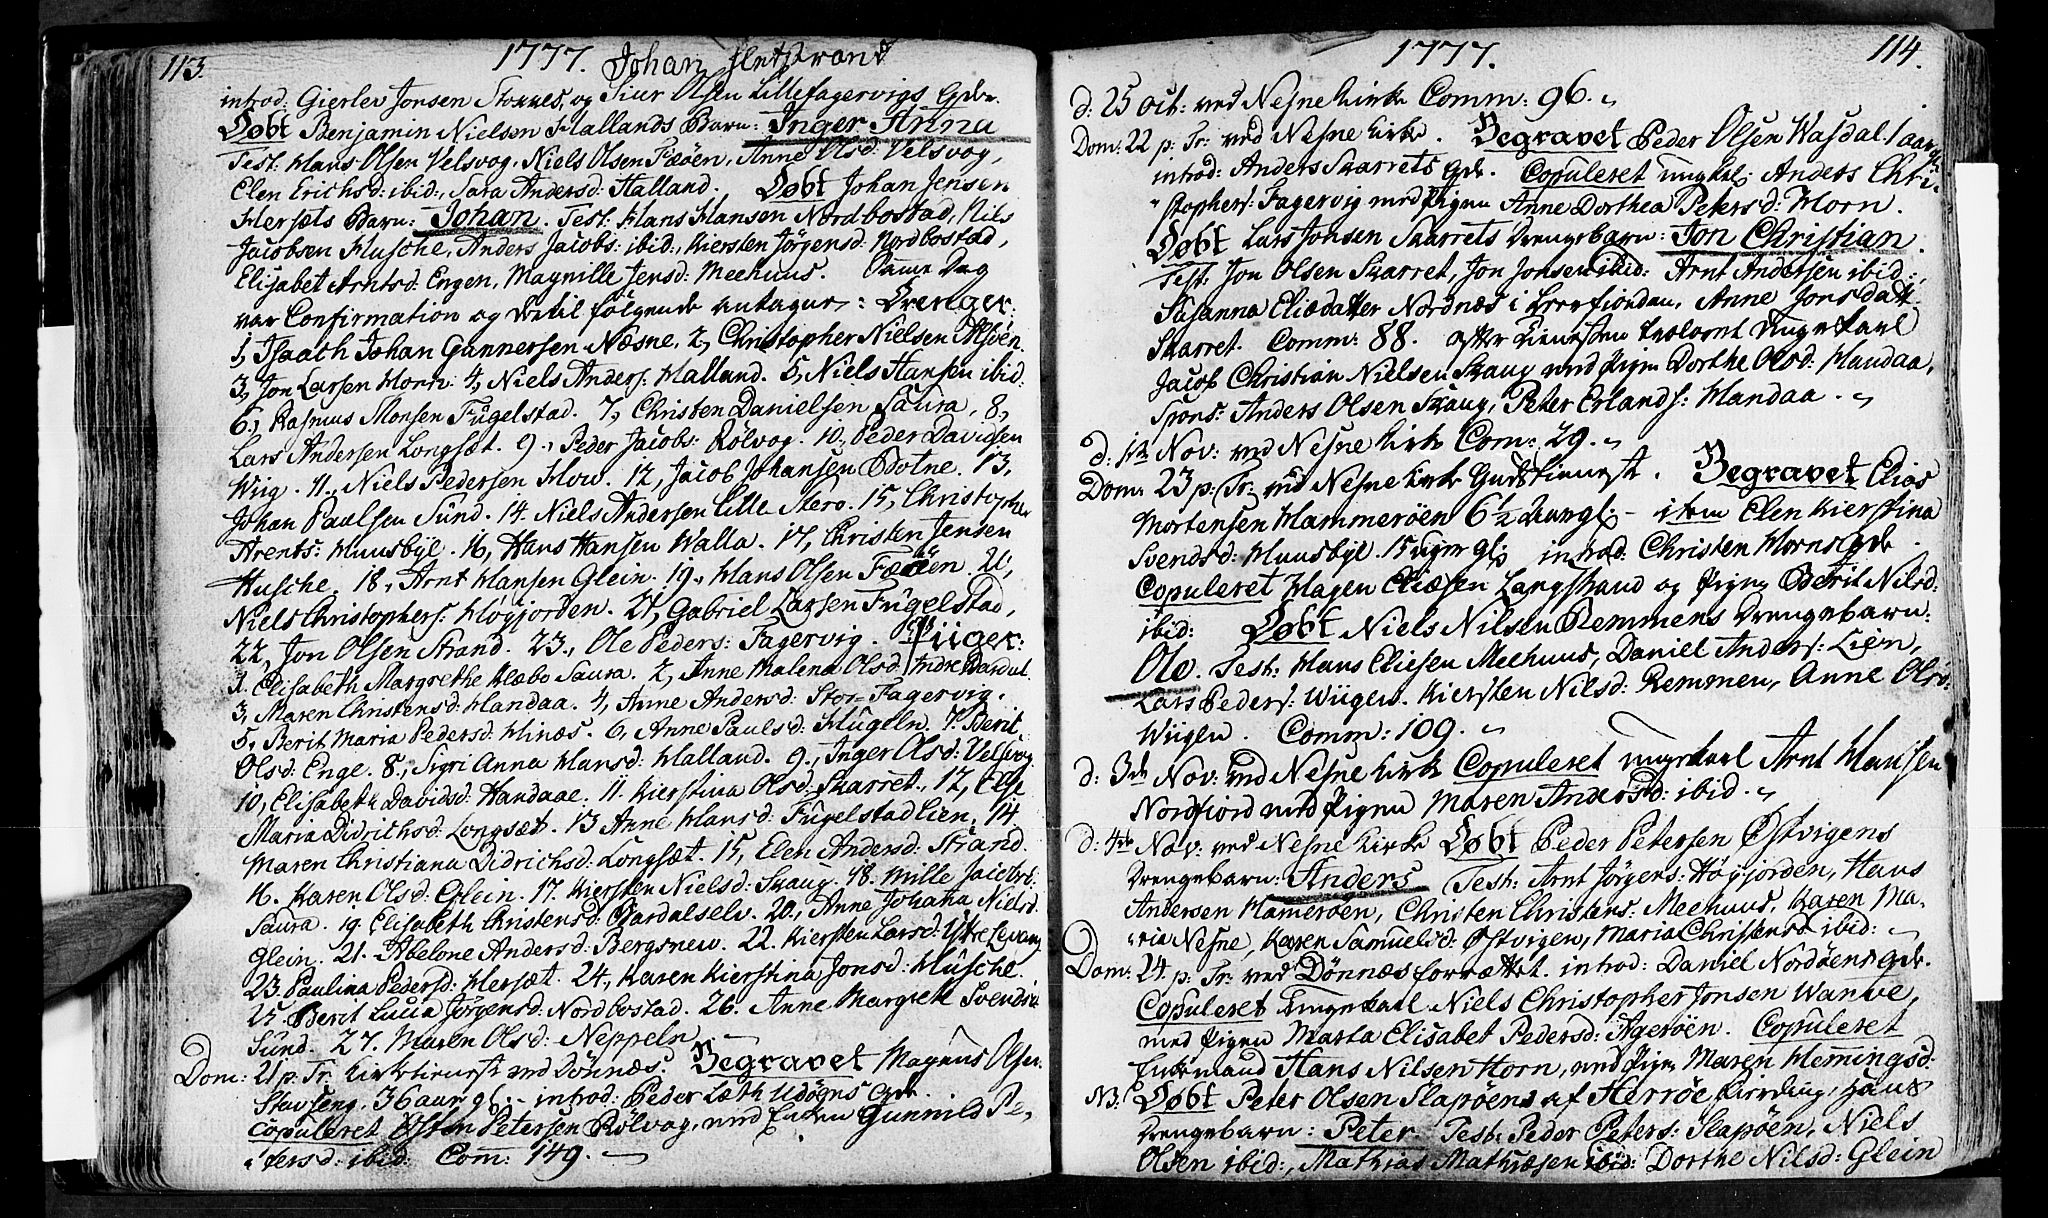 113.
1777. Johan
introd: Gierlev Jonsen Stokkes, og Siur Olsen Lillefagervigs Qdr.
Døbt Benjamin Nielsen Hallands Barn: Inger Anna
Test: Hans Olsen Velsvog, Niels Olsen Færöen, Anne Olsd: Velsvog,
Elen Erichsd: ibid:, Sara Andersd: Halland. Døbt Johan Jensen
Hersets Barn: Johan. Test: Hans Hansen Nordbostad, Nils
Jacobsen Husche, Anders Jacobs: ibid:, Kiersten Jörgensd: Nordbostad,
Elisabet Arntsd: Engen, Magnille Jensd: Meehuus. Samme Dag
var Confirmation og dertil følgende antagne: Drenger:
1, Isaach Johan Gunnersen Næsne. 2, Christopher Nielsen
3, Jon Larsen Horn: 4, Niels Anders: Halland. 5, Niels Hansen ibid:
6, Rasmus Monsen Fugelstad. 7, Christen Danielsen Saura. 8,
Lars Andersen Longsæt. 9, Peder Jacobs: Rölvog. 10, Peder Davidsen
Wiig. 11, Niels Pedersen How. 12, Jacob Johansen Botne. 13,
Johan Paulsen Sund. 14. Niels Andersen Lille Stero. 15, Christopher
Arents: Huusbye. 16, Hans Hansen Walla. 17, Christen Jensen
Husche. 18, Arnt Hansen Glein. 19, Hans Olsen Færöen. 20,
Niels Christophers: Høgjorden. 21, Gabriel Larsen Fugelstad,
22, Jon Olsen Strand. 23, Ole Peders: Fagervig. Piiger:
1. Elisabeth Margrethe Klæbo Saura. 2, Anne Malena Olsd: Indre Bardal
3, Maren Christensd: Handaa. 4, Anne Andersd: Stor-Fagervig.
5, Berit Maria Pedersd: Hinæs. 6, Anne Paulsd: Hugeln. 7. Berit
Olsd: Enge. 8, Sigri Anna Hansd: Halland. 9, Inger Olsd: Velsvog
10, Elisabeth Davidsd: Handaae. 11. Kierstina Olsd: Skarret. 12, Else
Maria Didrichsd: Longsæt. 13 Anne Hansd: Fugelstadlien. 14.
Maren Christiana Didrichsd: Longsæt. 15, Elen Andersd: Strand.
16. Karen Olsd: Glein. 17. Kiersten Nielsd: Skaug. 18. Mille Jacobs:
Saura. 19. Elisabeth Christensd: Bardalselv. 20, Anne Johana Nielsd:
Glein. 21. Abelone Andersd: Bergsnew. 22. Kiersten Larsd: Ytre Levang
23. Paulina Pedersd: Hersæt. 24, Karen Kierstina Jonsd: Husche.
25. Berit Lucia Jörgensd: Nordbostad. 26. Anne Margrete Svendsd:
Sund. 27. Maren Olsd: Neppeln.
Dom: 21 p: Tr: Kirketieneste ved Dönnæs. Begravet Magnus Olsen
Stavseng, 36 aar gl: introd: Peder Læth Udögns Qdr.
Copuleret Østen Petersen Rölvog, med Enken Gunnild Pe-
tersd: ibid: Com: 149.
1777.
114.
d: 25 Oct: ved Nesne Kirke Comm: 96.
Dom: 22 p: Tr: ved Nesne Kirke. Begravet Peder Olsen Wasdal 1 aar
introd: Anders Skarrets Qdr. Copuleret ungkl: Anders Chri-
stophers: Fagervig med Pigen Anne Dorthea Petersd: Horn.
Døbt Lars Jonsen Skarrets Drengebarn: Jon Christian.
Test: Jon Olsen Skarret, Jon Jonsen ibid: Arnt Andersen ibid:,
Susanna Eliædatter Nordnæs i Leerfiorden, Anne Jonsdatt:
Skarret. Comm: 88. efter Tienesten trolovet Ungekarl
Jacob Christian Nielsen Skaug med Pigen Dorthe Olsd: Handaa,
Spons: Anders Olsen Skaug, Peter Erlands: Handaa.
d: 1te Nov: ved Nesne Kirke Com: 29.
Dom: 23 p: Tr: ved Nesne Kirke Gudstieneste. Begravet Elias
Mortensen Hammeröen 6½ Aar gl: item Elen Kierstina
Svendsd: Huusbye 15 uger gl: introd: Christen Horns Qdr.
Copuleret Hagen Eliæsen Langstrand og Pigen Berit Nilsd:
ibid: Døbt Niels Nilsen Remmens Drengebarn:
Ole. Test: Hans Eliesen Meehuus, Daniel Anders: Lien,
Lars Peders: Wiigen. Kiersten Nilsd: Remmen, Anne Olsd:
Wiigen. Comm: 109.
d: 3de Nov: ved Nesne Kirke Copuleret ungekarl Arnt Hansen
Nordfiord med Pigen Maren Andersd: ibid.
d: 4de Nov: ved Nesne Kirke Døbt Peder Petersen Østvigens
Drengebarn: Anders Test: Arnt Jörgens: Högjorden, Hans
Andersen Hameröen, Christen Christens: Meehuus, Karen Ma-
ria Nesne, Karen Samuelsd: Østvigen, Maria Christensd ibid:
Dom: 24 p: Tr: ved Dönnæs forrettet. introd: Daniel Nordöens Qdr.
Copuleret Ungekarl Niels Christopher Jonsen Wanve,
med Pigen Marta Elisabet Pedersd: Ageröen. Copuleret
Enkemand Hans Nilsen Horn, med Pigen Maren Hemingsd:
NB: Døbt Peter Olsen Slapöens af Herröe hans
Drengebarn: Peter. Test: Peder Peters: Slapöen, Niels
Olsen ibid:, Mathias Mathiæsen ibid: Dorthe Nilsd: Glein